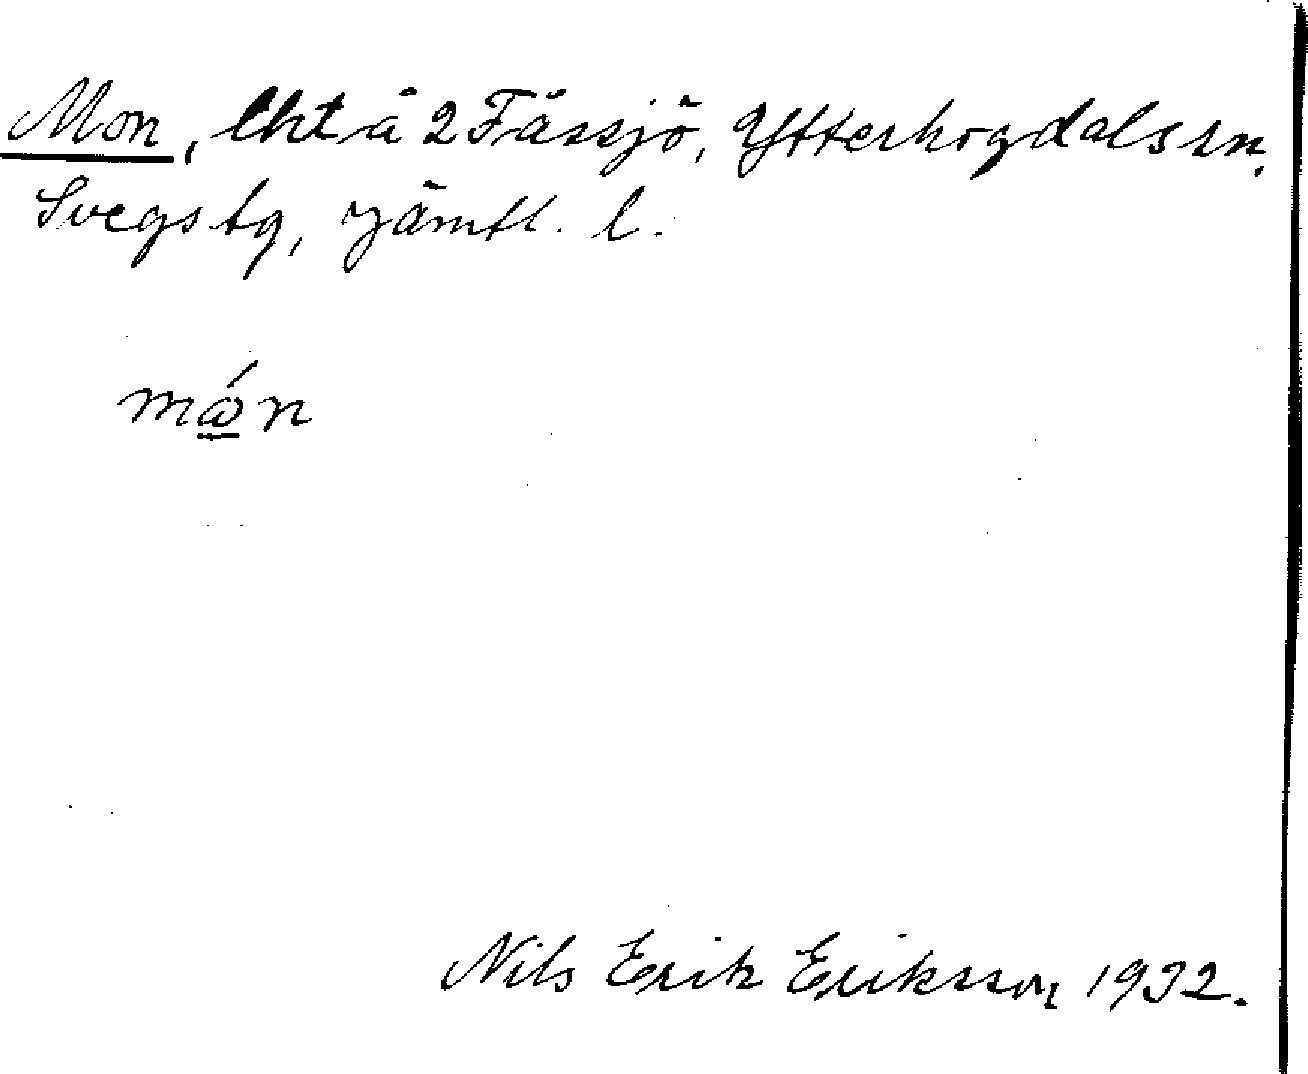 Mon, lht å 2 Fåssjö, Ytterhogdals sn.
Svegs tg, Jämtl. l.
mώ̱n
Nils Erik Eriksson 1932.